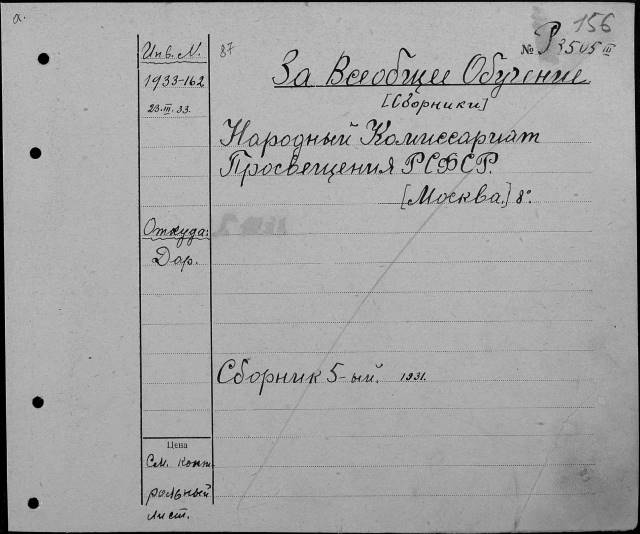 а.
156
Инв. N.
87
№ P 3505 III
1933-162
За Всеобщее Обучение
23.III.33.
[Сборники]
Народный Комиссариат
Просвещения РСФСР.
[Москва.] 8°.
Откуда:
Дар.
Сборник 5-ый. 1931.
Цена
См. конт-
рольный
лист.